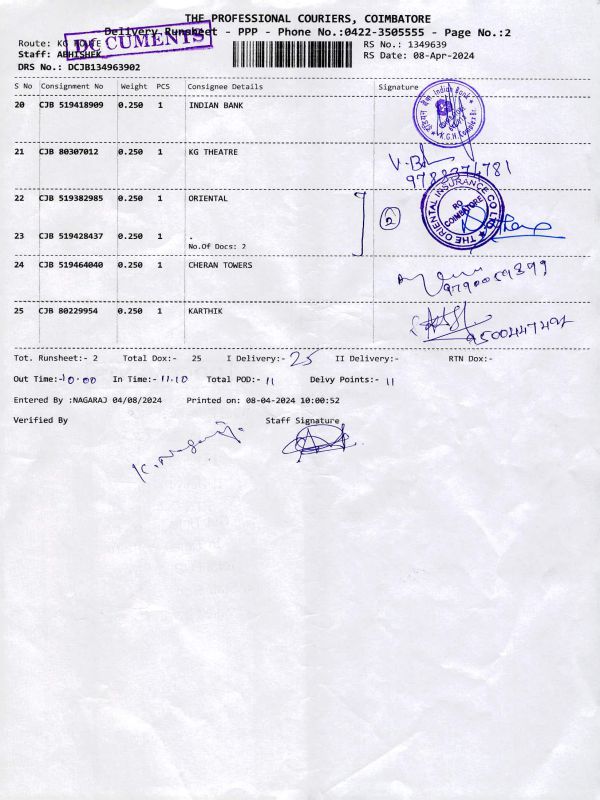 THE PROFESSIONAL COURIERS, COIMBATORE
Delivery Runsheet - PPP - Phone No.:0422-3505555 - Page No.:2
DOCUMENTS
Route: KG ROUTE
RS No.: 1349639
Staff: ABHISHEK
RS Date: 08-Apr-2024
DRS No.: DCJB134963902
S No Consignment No Weight PCS Consignee Details Signature
20 CJB 519418909 0.250 1 INDIAN BANK
Indian Bank
21 CJB 80307012 0.250 1 KG THEATRE
9788371781
22 CJB 519382985 0.250 1 ORIENTAL
THE ORIENTAL INSURANCE CO LTD.
RO
COIMBATORE
2
23 CJB 519428437 0.250 1 .
No.Of Docs: 2
24 CJB 519464040 0.250 1 CHERAN TOWERS
25 CJB 80229954 0.250 1 KARTHIK
Tot. Runsheet:- 2 Total Dox:- 25 I Delivery:- 25 II Delivery:- RTN Dox:-
Out Time:- 10.00 In Time:- 11.10 Total POD:- 11 Delvy Points:- 11
Entered By :NAGARAJ 04/08/2024 Printed on: 08-04-2024 10:00:52
Verified By Staff Signature